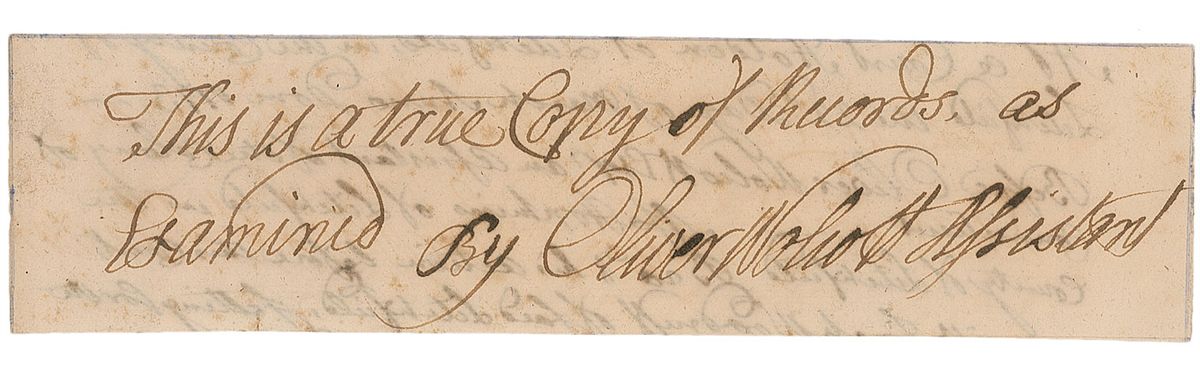 This is a true Copy of Records. as
Examined By Oliver Wolcott Assistant